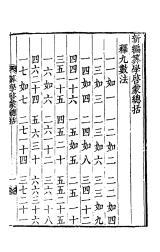 新編算學啓蒙總括
釋九數法
一一如一　一二如二　二二如四
一三如三　二三如六　三三如九
一四如四　二四如八　三四一十二
四四一十六　一五如五　二五一十
三五一十五　四五二十　五五二十五
一六如六　二六一十二　三六一十八
四六二十四　五六三十　六六三十六
一七如七　二七一十四　三七二十一
算學啓蒙總括